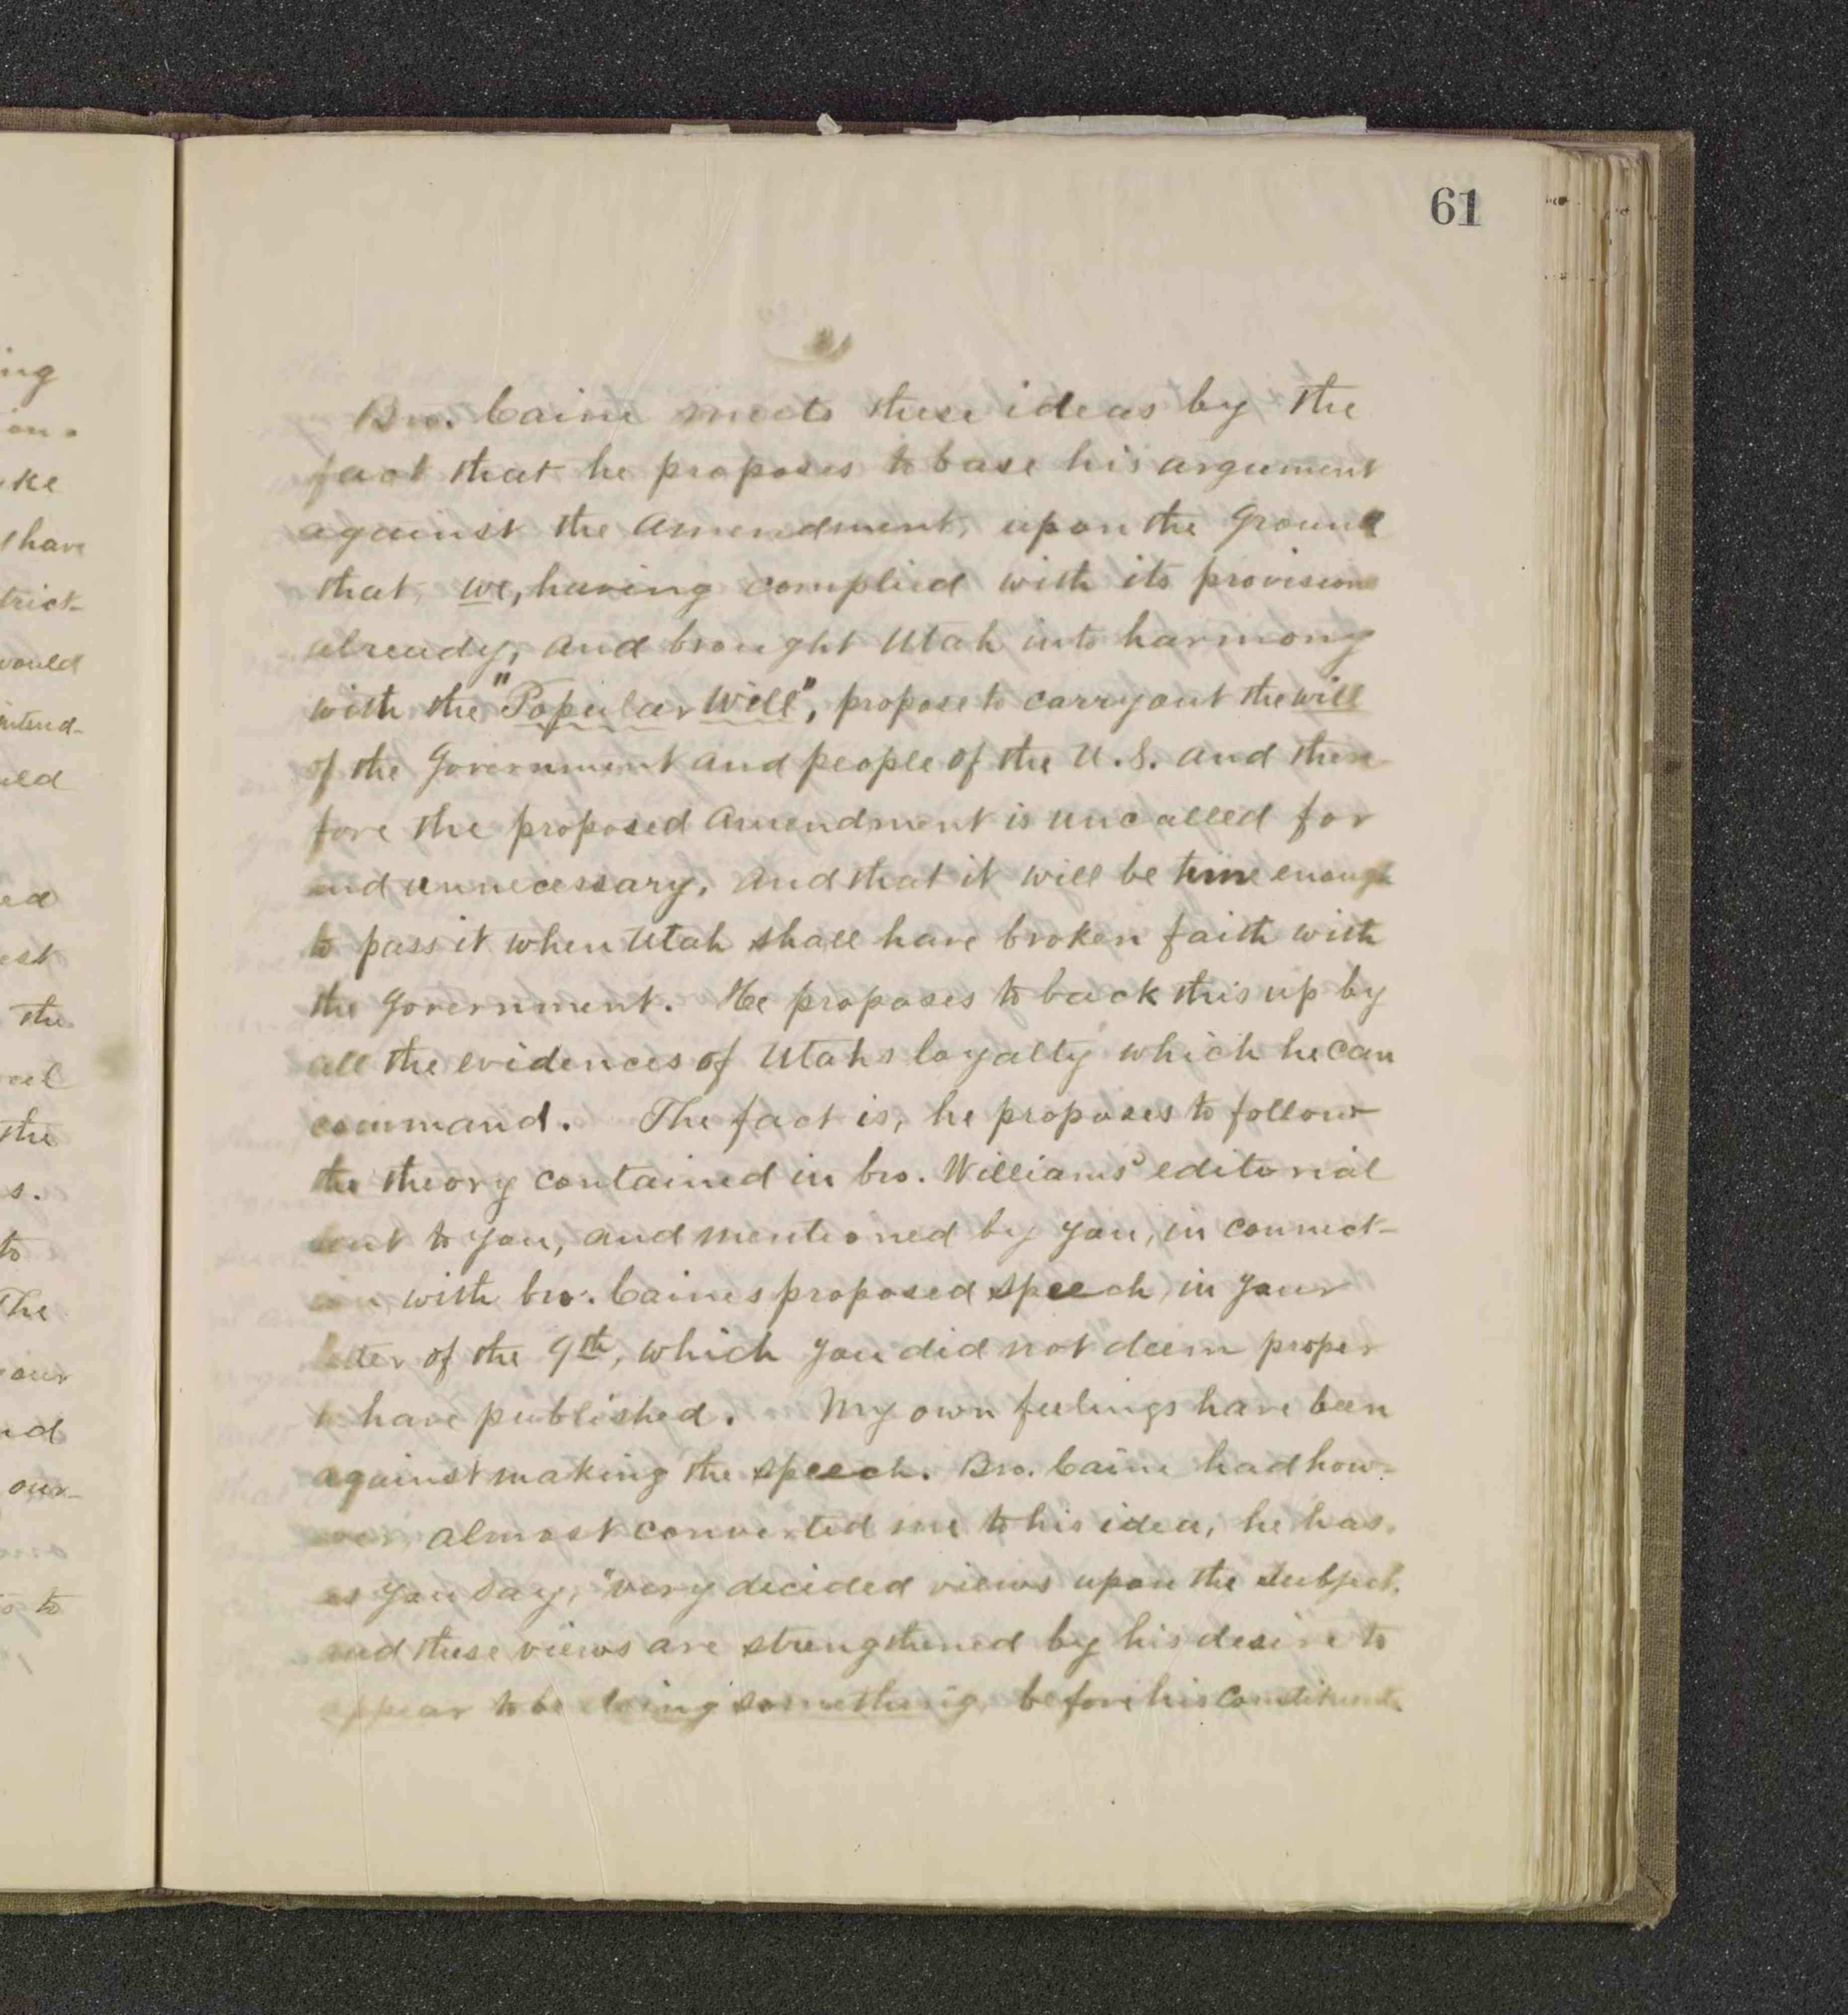 ing
ion.
ke
have
trict-
would
intend-
uld
ed
est
the
the
s.
to
The
our
nd
our-
to
61
Bro. Caine meets these ideas by the
fact that he proposes to base his argument
against the Amendment, upon the ground
that, we, having complied with its provisions
already, and brought Utah into harmony
with the "Popular Will", propose to carry out the will
of the Government and people of the U.S. and there-
fore the proposed Amendment is uncalled for
and unnecessary, and that it will be time enough
to pass it when Utah shall have broken faith with
the Government. He proposes to back this up by
all the evidences of Utahs loyalty which he can
command. The fact is, he proposes to follow
the theory contained in bro. Williams' editorial
sent to you, and mentioned by you, in connect-
ion with bro. Caines proposed speech, in your
letter of the 9th, which you did not deem proper
to have published. My own feelings have been
against making the speech. Bro. Caine had how-
ever, almost converted me to his idea, he has,
as you say, "very decided views upon the subject,
and these views are strengthened by his desire to
appear to be doing something, before his constituents.